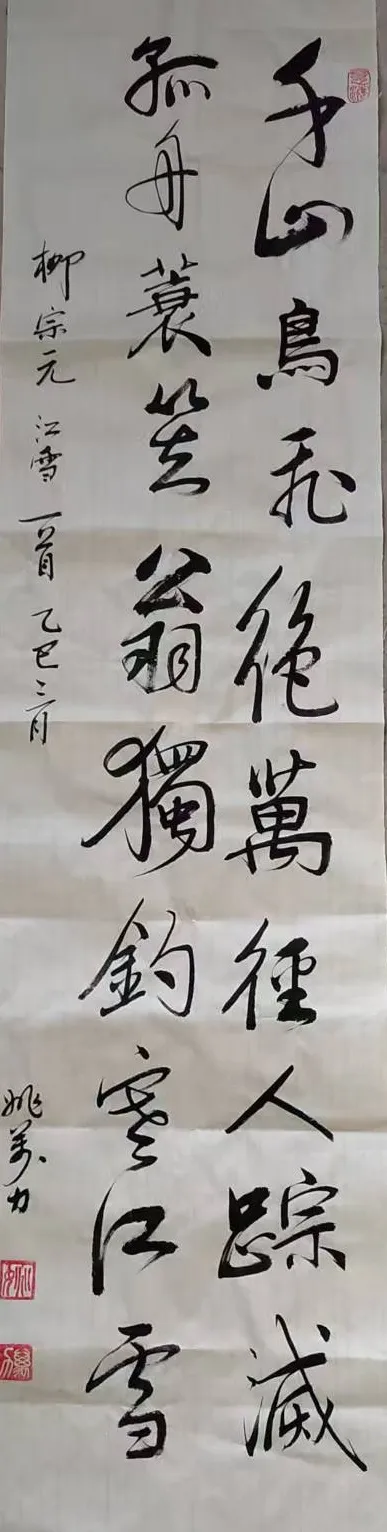 千山鳥飛絕萬徑人踪滅
孤舟蓑笠翁獨釣寒江雪
柳宗元江雪一首乙巳三月
姚萬力